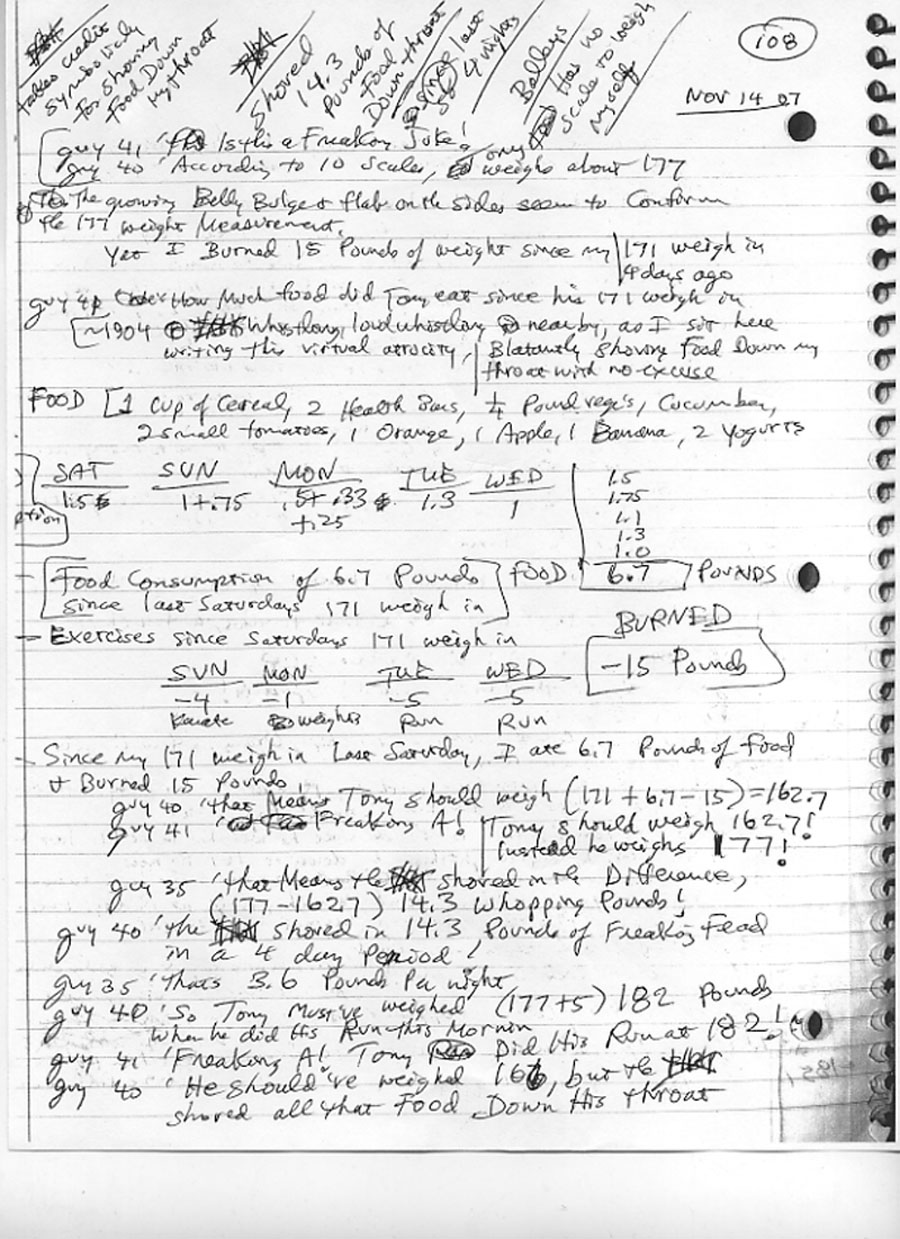 takes credit
Symbolicly
For shoving
Food Down
My throat
shoved
14.3
Pounds of
Food
Down throat
last
4 nights
Ballys
Has no
Scale to weigh
myself
108
Nov 14 07
guy 41 'Is this a Freaking Joke!
guy 40 'According to 10 scales, Tony weighs about 177
The growing Belly Bulge & flab on the sides seem to Confirm
the 177 weight Measurement.
Yet I Burned 15 Pounds of weight since my 171 weigh in
4 days ago
guy 41 How Much food did Tony eat since his 171 weigh in
[~1904 Whistling, loud whistling nearby, as I sit here
writing this virtual atrocity, Blatantly shoving Food Down my
throat with no excuse
FOOD [1 Cup of Cereal, 2 Health Bars, 1/4 Pound vegi's, Cucumber,
2 small tomatoes, 1 Orange, 1 Apple, 1 Banana, 2 Yogurts
SAT SUN MON TUE WED
1.5 1+.75 .5+.33 1.3 1
+.25
1.5
1.75
1.1
1.3
1.0
Food Consumption of 6.7 Pounds FOOD 6.7 POUNDS
since last Saturdays 171 weigh in
BURNED
- Exercises since Saturdays 171 weigh in
-15 Pounds
SUN MON TUE WED
-4 -1 -5 -5
Karate weights Run Run
- Since my 171 weigh in Last Saturday, I ate 6.7 Pounds of food
& Burned 15 Pounds!
guy 40 'that Means Tony should weigh (171 + 6.7 - 15) = 162.7
guy 41 'Freaking A! Tony should weigh 162.7!
Instead he weighs 177!
guy 35 'that Means the shoved in the Difference,
(177-162.7) 14.3 Whopping Pounds!
guy 40 'the shoved in 14.3 Pounds of Freaking Food
in a 4 day Period!
guy 35 'Thats 3.6 Pounds Per night
guy 40 'So Tony Must've weighed (177+5) 182 Pounds
When he did His Run this Mornin
guy 41 'Freaking A! Tony Did His Run at 182!
guy 40 'He should've weighed 166, but the
shoved all that Food Down His throat